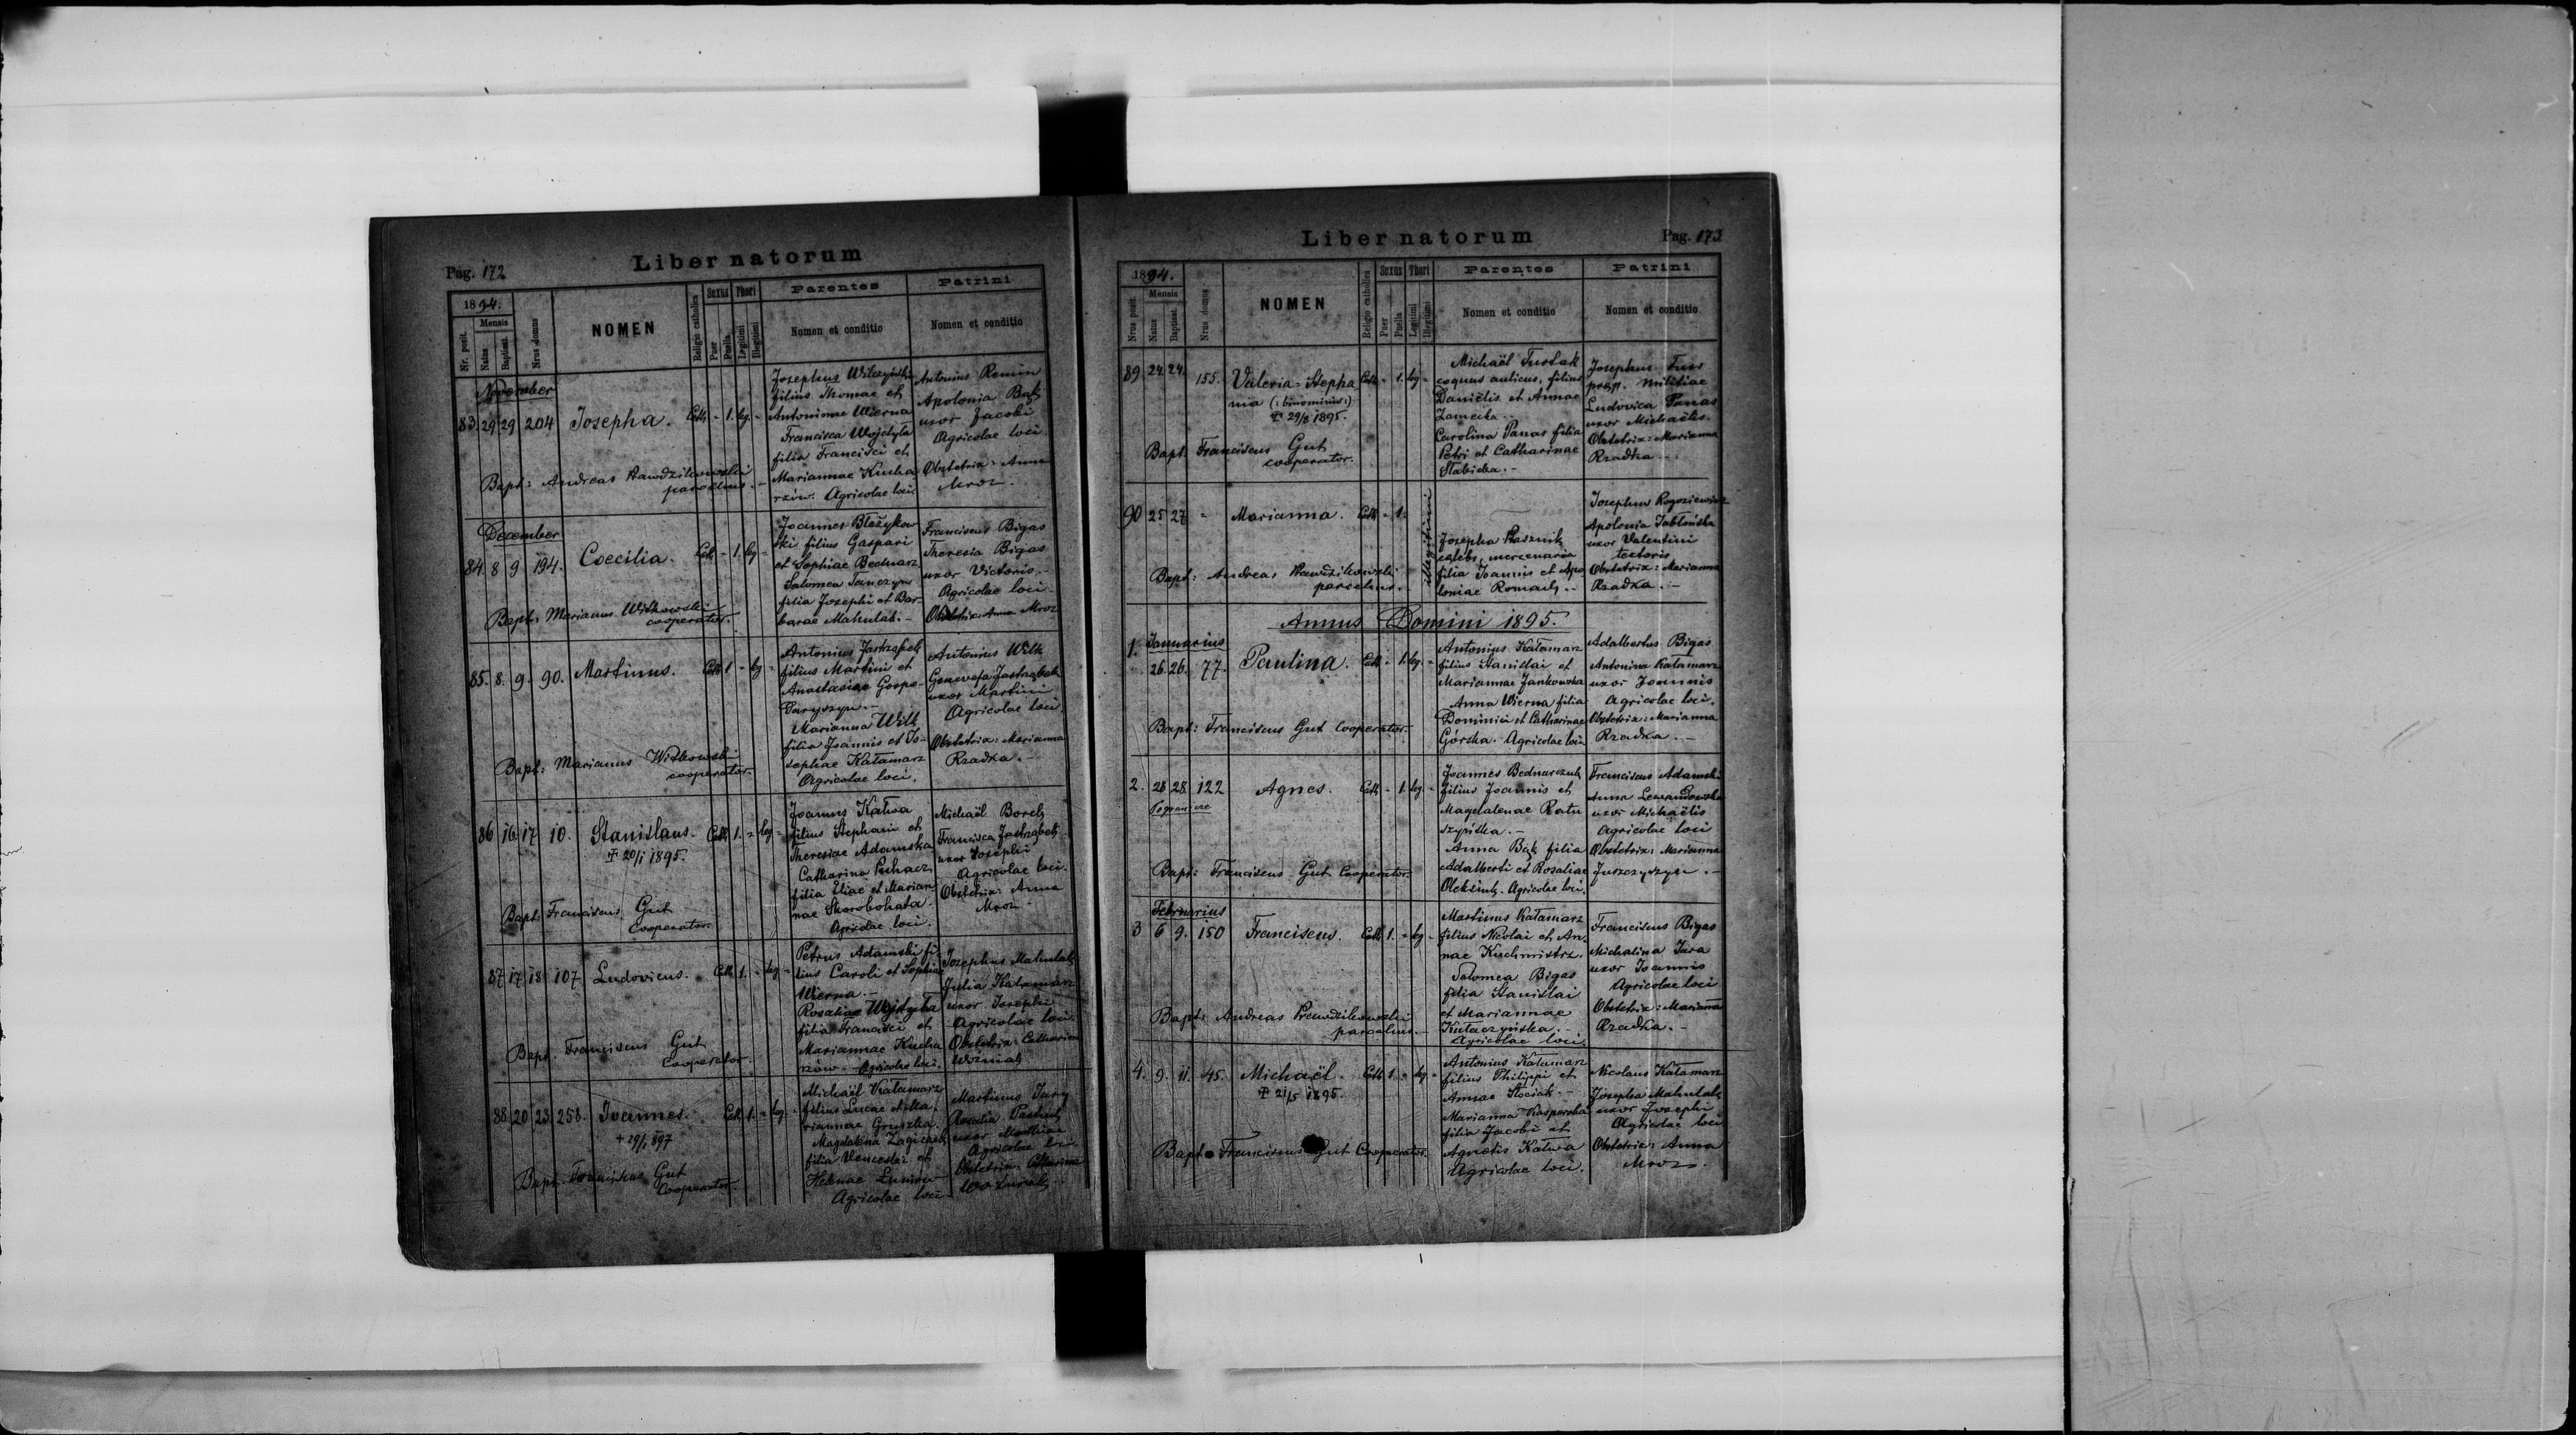 Pag. 172
Liber natorum
1894.
Nr. posit.
Mensis
Natus
Baptisat.
Nrus domus
NOMEN
Religio catholica
Sexus
Puer
Puella
Thori
Legitimi
Illegitimi
Parentes
Nomen et conditio
Patrini
Nomen et conditio
November
83. 29 29 204 Josepha. Cath - 1. leg. -
Josephus Wilczyński
filius Thomae et
Antoninae Wierna
Francisca Wojdyła
filia Francisci et
Mariannae Kucha
rzów. Agricolae loci.
Antonius Remin
Apolonia Bąk
uxor Jacobi
Agricolae loci.
Obstetrix: Anna
Mroz.
Bapt: Andreas
parochus.
December
84. 8 9 194. Coecilia. Cath - 1. leg -
Joannes Błażykow
ski filius Gaspari
et Sophiae Bednarz
Salomea Tanczyn
filia Josephi et Bar-
barae Mahulak. -
Franciscus Bigas
Theresia Bigas
uxor Victoris. -
Agricolae loci.
Obstetrix: Anna Mroz
Bapt: Marianus Witkowski
cooperator.
85. 8. 9. 90. Martinus. Cath 1 - leg -
Antonius Jastrząbek
filius Martini et
Anastasiae Gospo-
daryszyn. -
Marianna Wilk
filia Joannis et Jo-
sephae Katamarz
Agricolae loci.
Antonius Wilk
Genovefa Jastrząbek
uxor Martini
Agricolae loci.
Obstetrix: Marianna
Rzadka. -
Bapt: Marianus Witkowski
cooperator.
86 16. 17 10. Stanislaus. Cath 1. - leg -
‡ 20/1 1895.
Joannes Katwa
filius Stephani et
Theresiae Adamska
Catharina Puhacz
filia Eliae et Marian
nae Skorobohata.
Agricolae loci.
Michaël Borek
Francisca Jastrząbek
uxor Josephi
Agricolae loci.
Obstetrix: Anna
Mroz -
Bapt: Franciscus Gut
Cooperator.
87 17 18 107 Ludovicus. Cath 1. - leg -
Petrus Adamski fi-
lius Caroli et Sophiae
Wierna. -
Rosalia Wojdyła
filia Francisci et
Mariannae Kucha
rzów. - Agricolae loci.
Josephus Mahulak
Julia Katamarz
uxor Josephi
Agricolae loci.
Obstetrix: Catharina
Wozniak
Bapt: Franciscus Gut
Cooperator.
88. 20 23. 256. Joannes. Cath 1. - leg -
Michaël Katamarz
filius Lucae et Ma
riannae Gruszka.
Magdalena
filia Venceslai et
Helenae
Agricolae loci
Martinus
Rosalia
uxor
Agricolae loci
Obstetrix: Catharina
Bapt: Franciscus Gut
Cooperator.
Liber natorum
Pag. 173
1894.
Nrus posit.
Mensis
Natus
Baptisat.
Nrus domus
NOMEN
Religio catholica
Sexus
Puer
Puella
Thori
Legitimi
Illegitimi
Parentes
Nomen et conditio
Patrini
Nomen et conditio
89 24. 24. 155. Valeria-Stepha Cath - 1. leg -
nia (: binominis:)
‡ 29/8 1895.
Michaël Tustak
coquus aulicus, filius
Daniëlis et Annae
Zamecka. -
Carolina Panas filia
Petri et Catharinae
Stabicka. -
Josephus Tuss
praep. militiae
Ludovica Panas
uxor Michaëlis.
Obstetrix: Marianna
Rzadka. -
Bapt: Franciscus Gut
cooperator.
90 25 27 - Marianna. Cath - 1.
illegitimi
Josepha Ptasznik
caelebs, mercenaria
filia Joannis et Apo
loniae Romach. -
Josephus Rogoziewicz
Apolonia Jabłońska
uxor Valentini
textoris
Obstetrix: Marianna
Rzadka. -
Bapt: Andreas
parochus. -
Annus Domini 1895.
Januarius
1. 26. 26. 77. Paulina. Cath - 1. leg. -
Antonius Katamarz
filius Stanislai et
Mariannae Jankowska
Anna Wierna filia
Dominici et Catharinae
Górska. Agricolae loci
Adalbertus Bigas
Antonina Katamarz
uxor Joannis
Agricolae loci.
Obstetrix: Marianna
Rzadka. -
Bapt: Franciscus Gut Cooperator.
2. 28 28 122 Agnes. Cath - 1. leg. -
Joannes Bednarczuk
filius Joannis et
Magdalenae Ratu
szyńska. -
Anna Bąk filia
Adalberti et Rosaliae
Oleksiuk. Agricolae loci.
Franciscus Adamski
Anna Lewandowska
uxor Michaëlis
Agricolae loci
Obstetrix: Marianna
Juszczyszyn. -
Bapt: Franciscus Gut Cooperator.
Februarius
3 6 9. 150 Franciscus. Cath 1. - leg -
Martinus Katamarz
filius Nicolai et An-
nae Kuchmistrz.
Salomea Bigas
filia Stanislai
et Mariannae
Kułaczyńska. -
Agricolae loci.
Franciscus Bigas
Michalina Jara
uxor Joannis
Agricolae loci
Obstetrix: Marianna
Rzadka. -
Bapt: Andreas
parochus. -
4. 9. 11. 45. Michaël. Cath 1 - leg -
‡ 21/5 1895.
Antonius Katamarz
filius Philippi et
Annae Stociak. -
Marianna Kasperska
filia Jacobi et
Agnetis Katwa
Agricolae loci.
Nicolaus Katamarz
Josepha Mahulak
uxor Josephi
Agricolae loci
Obstetrix: Anna
Mroz.
Bapt: Franciscus Gut Cooperator.